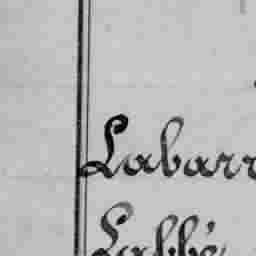 Labarr
Labbé